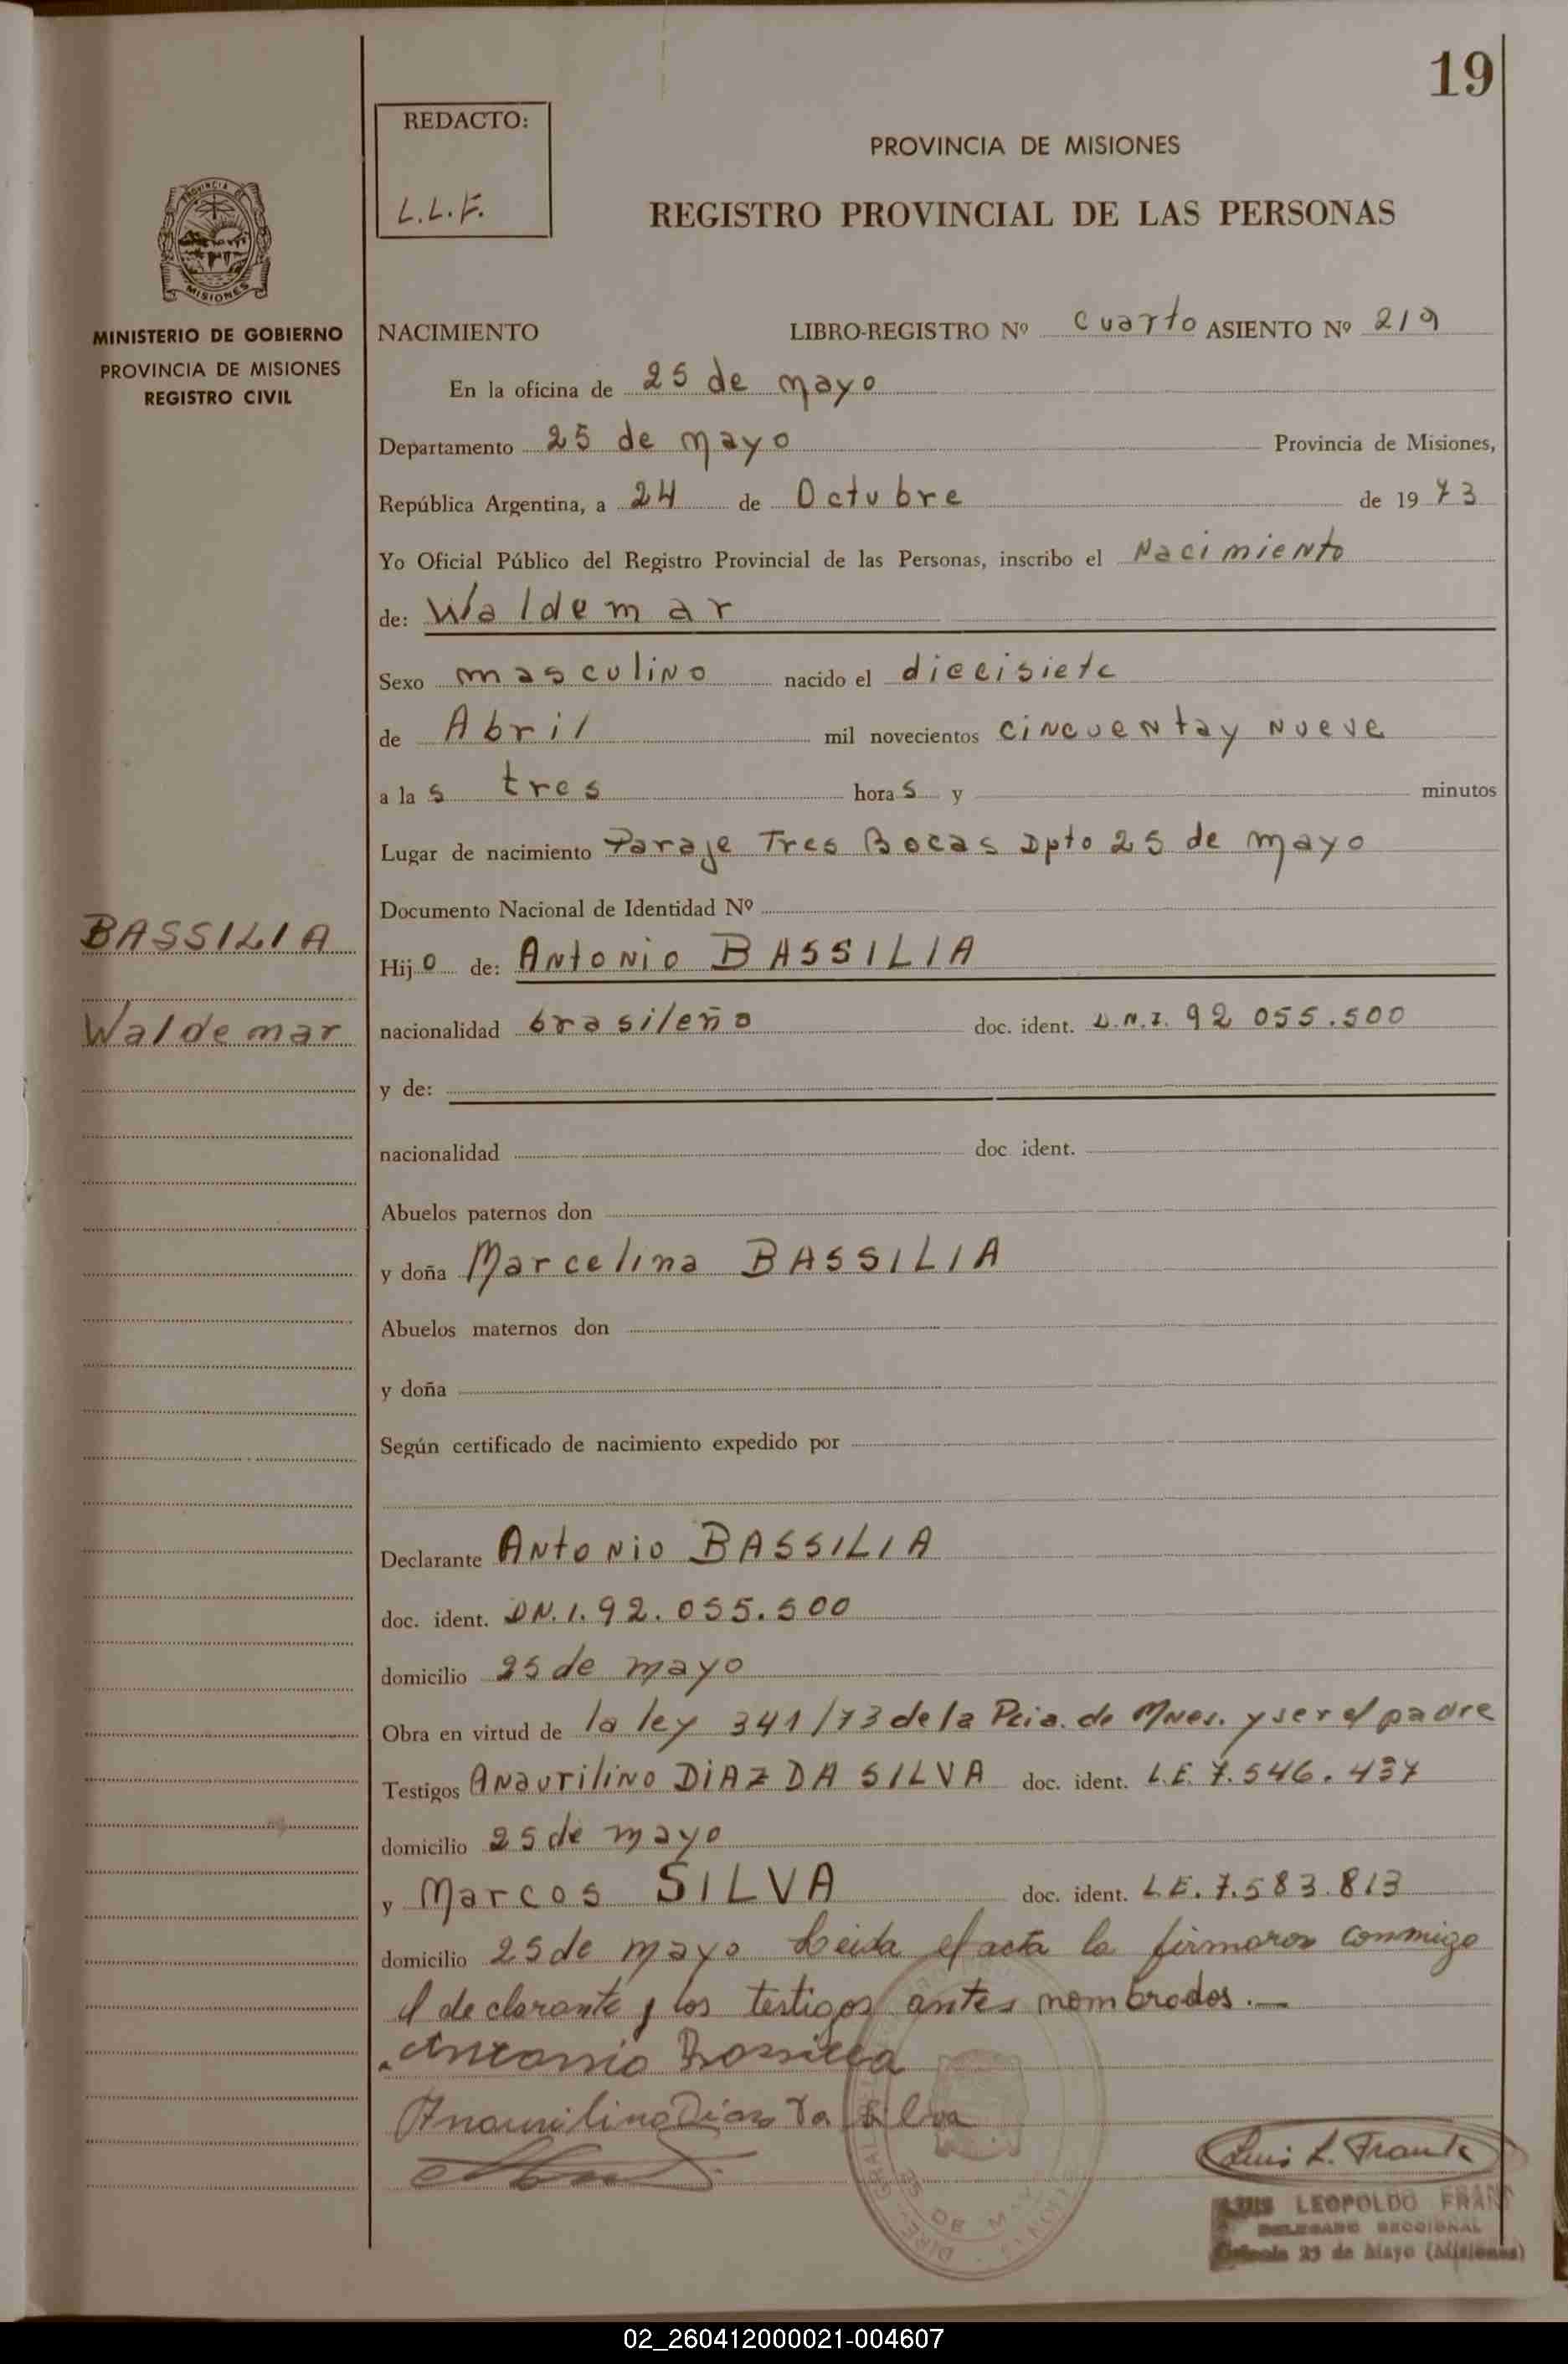 19
REDACTO:
L.L.F.
PROVINCIA DE MISIONES
REGISTRO PROVINCIAL DE LAS PERSONAS
PROVINCIA DE
MISIONES
MINISTERIO DE GOBIERNO
PROVINCIA DE MISIONES
REGISTRO CIVIL
NACIMIENTO LIBRO-REGISTRO Nº cuarto ASIENTO Nº 219
En la oficina de 25 de mayo
Departamento 25 de mayo Provincia de Misiones,
República Argentina, a 24 de Octubre de 1973
Yo Oficial Público del Registro Provincial de las Personas, inscribo el Nacimiento
de: Waldemar
Sexo masculino nacido el diecisiete
de Abril mil novecientos cincuenta y nueve
a las tres horas y minutos
Lugar de nacimiento Paraje Tres Bocas Dpto 25 de mayo
Documento Nacional de Identidad Nº
BASSILIA
Hijo de: Antonio BASSILIA
Waldemar
nacionalidad brasileño doc. ident. D.N.I. 92 055.500
y de:
nacionalidad doc. ident.
Abuelos paternos don
y doña Marcelina BASSILIA
Abuelos maternos don
y doña
Según certificado de nacimiento expedido por
Declarante Antonio BASSILIA
doc. ident. DN.I. 92.055.500
domicilio 25 de mayo
Obra en virtud de la ley 341/73 de la Pcia. de Mnes. y ser el padre
Testigos Anaurilino DIAZ DA SILVA doc. ident. L.E. 7.546.437
domicilio 25 de mayo
y Marcos SILVA doc. ident. L.E. 7.583.813
domicilio 25 de mayo Leida el acta la firmaron conmigo
el declarante y los testigos antes nombrados.—
Antonio Bassilia
Anaurilino Dias Da Silva
Luis L. Frank
LUIS LEOPOLDO FRAN
DELEGADO SECCIONAL
Colonia 25 de Mayo (Misiones)
02_260412000021-004607